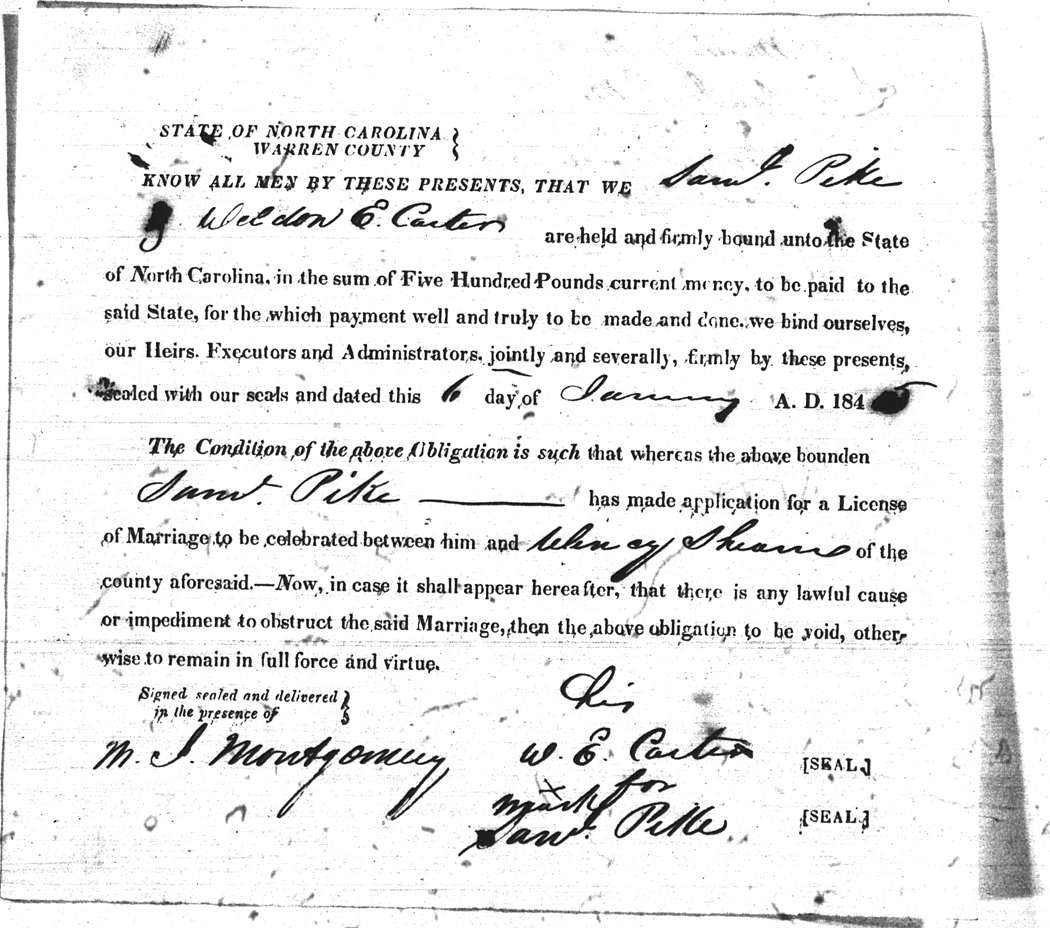 STATE OF NORTH CAROLINA }
WARREN COUNTY }
KNOW ALL MEN BY THESE PRESENTS, THAT WE Saml. Pike
& Weldon E. Carter are held and firmly bound unto the State
of North Carolina, in the sum of Five Hundred Pounds current money, to be paid to the
said State, for the which payment well and truly to be made and done, we bind ourselves,
our Heirs, Executors and Administrators, jointly and severally, firmly by these presents,
sealed with our seals and dated this 6 day of January A. D. 1845
The Condition of the above Obligation is such that whereas the above bounden
Saml. Pike has made application for a License
of Marriage to be celebrated between him and of the
county aforesaid.—Now, in case it shall appear hereafter, that there is any lawful cause
or impediment to obstruct the said Marriage, then the above obligation to be void, other-
wise to remain in full force and virtue.
Signed sealed and delivered }
in the presence of }
his
M. J. Montgomery W. E. Carter [SEAL.]
mark for
Saml. Pike [SEAL.]